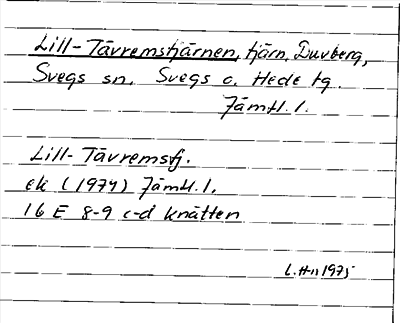 Lill-Tävremstjärnen, tjärn, Duvberg,
Svegs sn. Svegs o. Hede tg.
Jämtl. l.
Lill-Tävremstj.
ek (1974) Jämtl. l.
16 E 8-9 c-d Knätten
L. Hn 1975